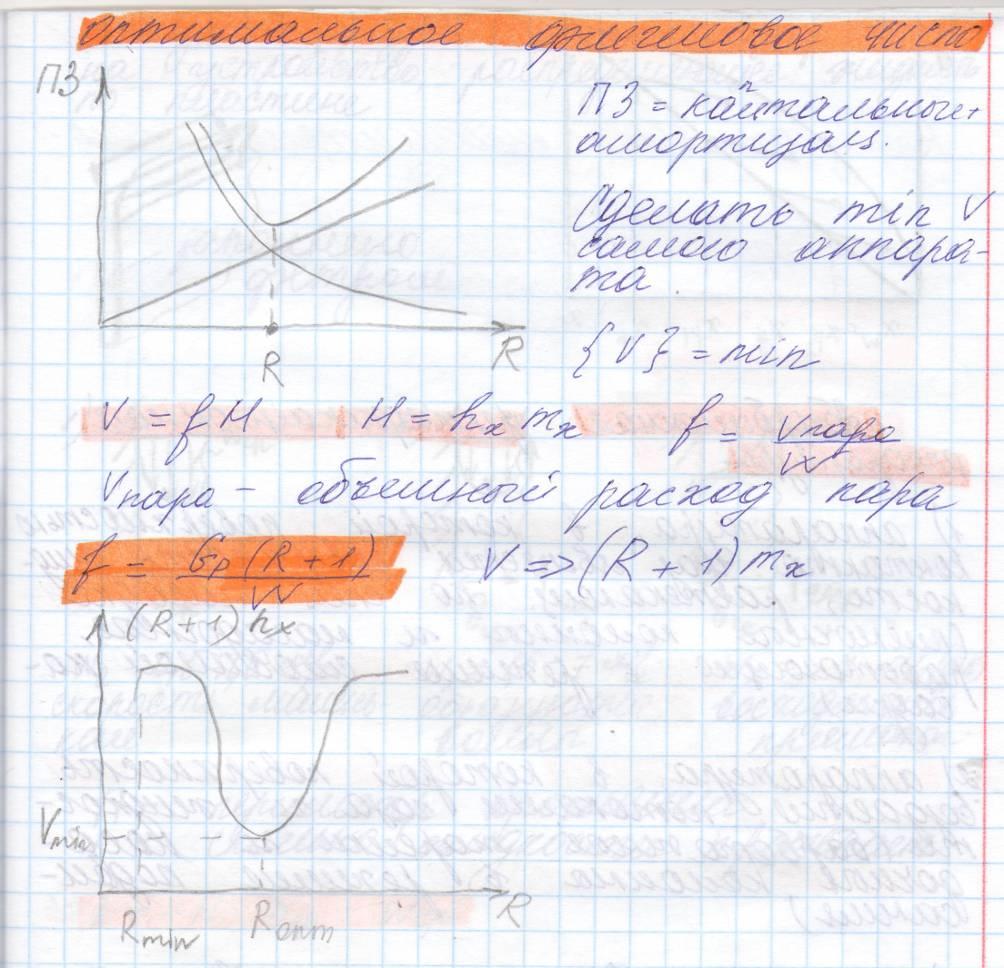 оптимальное флегмовое число
ПЗ
ПЗ = капитальные+
амортизац.
Сделать min V
самого аппара-
та.
{V} = min
R
R
V = f H H = hx mx f = Vпара/W
Vпара - объемный расход пара
f = GP (R + 1)/W V => (R + 1) mx
(R+1) hx
Vmin
R
Rmin Rопт